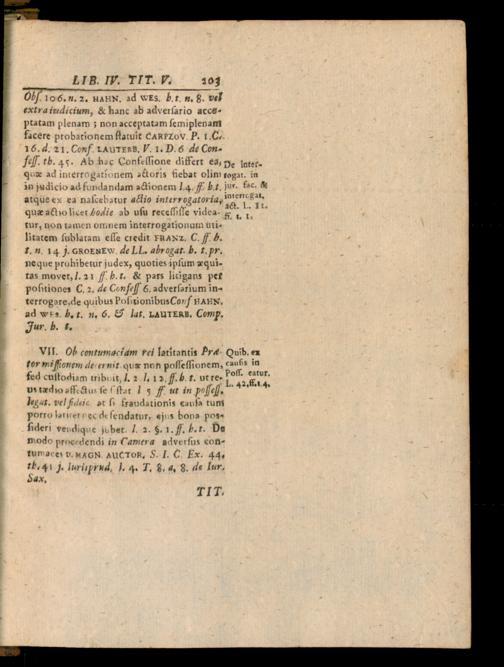 LIB. IV. TIT. V. 203
Obſ. 106. n. 2. HAHN. ad WES. h. t. n. 8. vel
extra iudicium, & hanc ab adverſario acce-
ptatam plenam; non acceptatam ſemiplenam
facere probationem ſtatuit CARPZOV. P. 1. C.
16. d. 21. Conf. LAUTERB. V. 1. D. 6 de Con-
feſſ. th. 45. Ab hac Confeſſione differt ea,
quæ ad interrogationem actoris fiebat olim
in judicio ad fundandam actionem l. 4. ff. h. t.
atque ex ea naſcebatur actio interrogatoria,
quæ actio licet hodie ab uſu receſſiſſe videa-
tur, non tamen omnem interrogationum uti-
litatem ſublatam eſſe credit FRANZ. C. ff. h.
t. n. 14 j. GROENEW. de LL. abrogat. h. t. pr.
neque prohibetur judex, quoties ipſum æqui-
tas movet, l. 21 ff. h. t. & pars litigans per
poſitiones C. 2. de Confeſſ 6. adverſarium in-
terrogare, de quibus Poſitionibus Conf HAHN.
ad WES. h. t. n. 6. & lat. LAUTERB. Comp.
Jur. h. t.
De Inter-
rogat. in
jur. fac. &
interrogat.
act. L. 11.
ff. t. 1.
VII. Ob contumaciam rei latitantis Præ-
tor miſſionem decernit quæ non poſſeſſionem,
ſed cuſtodiam tribuit, l. 2. l. 12. ff. h. t. ut re-
us tædio affectus ſe ſiſtat l 5 ff. ut in poſſeſſ.
legat. vel fideic at ſi fraudationis cauſa tum
porro latitet nec defendatur, ejus bona poſ-
ſideri vendique jubet. l. 2. §. 1. ff. h. t. De
modo procedendi in Camera adverſus con-
tumaces D. MAGN. AUCTOR. S. I. C. Ex. 44.
th. 41 j. Iurisprud. l. 4. T. 8. a. 8. de Iur.
Sax.
Quib. ex
cauſis in
Poſſ. eatur.
L. 42. ff. t. 4.
TIT.